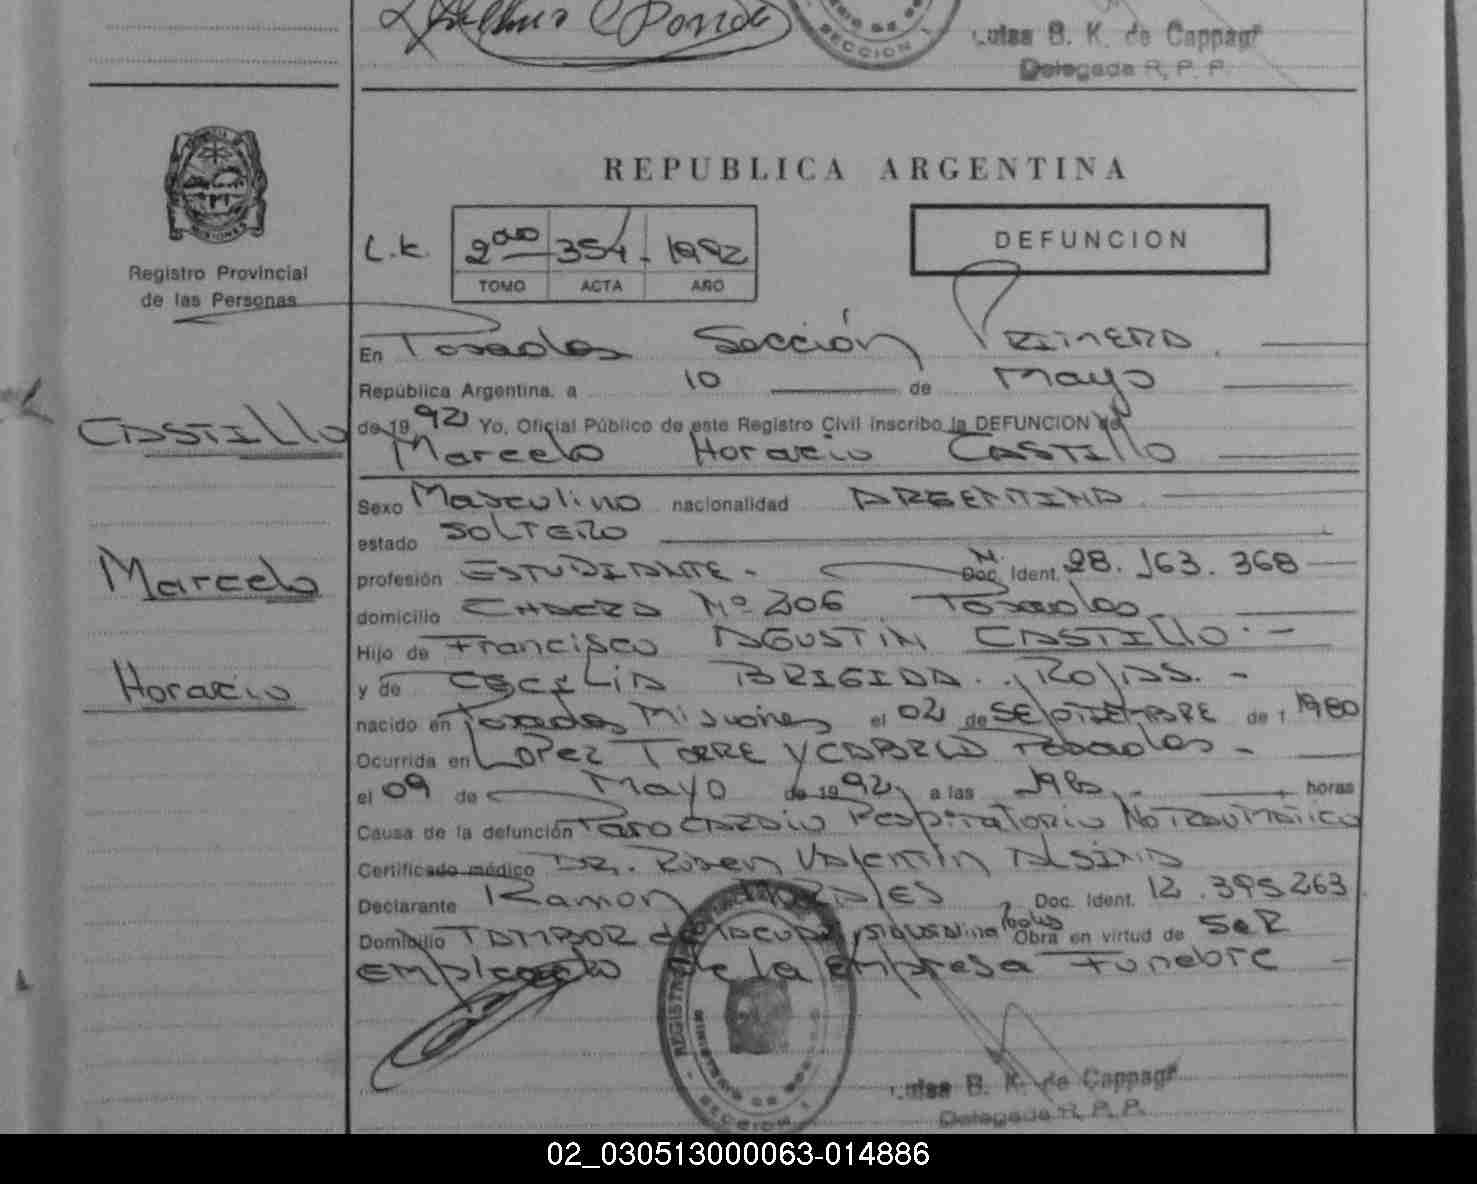 SECCION 1
Luisa B. K. de Cappagli
Delegada R. P. P.
REPUBLICA ARGENTINA
MISIONES
Registro Provincial
de las Personas
L.K. 2do 354 1992
TOMO ACTA AÑO
DEFUNCION
En Posadas Sección PRIMERA
República Argentina, a 10 de Mayo
de 1992 Yo, Oficial Público de este Registro Civil inscribo la DEFUNCION de
Marcelo Horacio CASTILLO
CASTILLO
Marcelo
Horacio
Sexo Masculino nacionalidad ARGENTINA
estado SOLTERO
profesión ESTUDIANTE Doc. Ident. N. 28.163.368
domicilio CHACRA Nº 206 Posadas
Hijo de Francisco AGUSTIN CASTILLO
y de CECILIA BRIGIDA ROJAS
nacido en Posadas Misiones el 02 de SEPTIEMBRE de 1980
Ocurrida en LOPEZ TORRE Y CABRED Posadas
el 09 de Mayo de 1992 a las horas
Causa de la defunción Paro CARDIO RespiraTorio No TRAUMATICO
Certificado médico DR. Ruben VALENTIN ALSINA
Declarante Ramon Doc. Ident. 12.395263
Domicilio TAMBOR de TACUARI Obra en virtud de SER
EMPLEADO de la empresa Funebre
SECCION 1
Luisa B. K. de Cappagli
Delegada R. P. P.
02_030513000063-014886